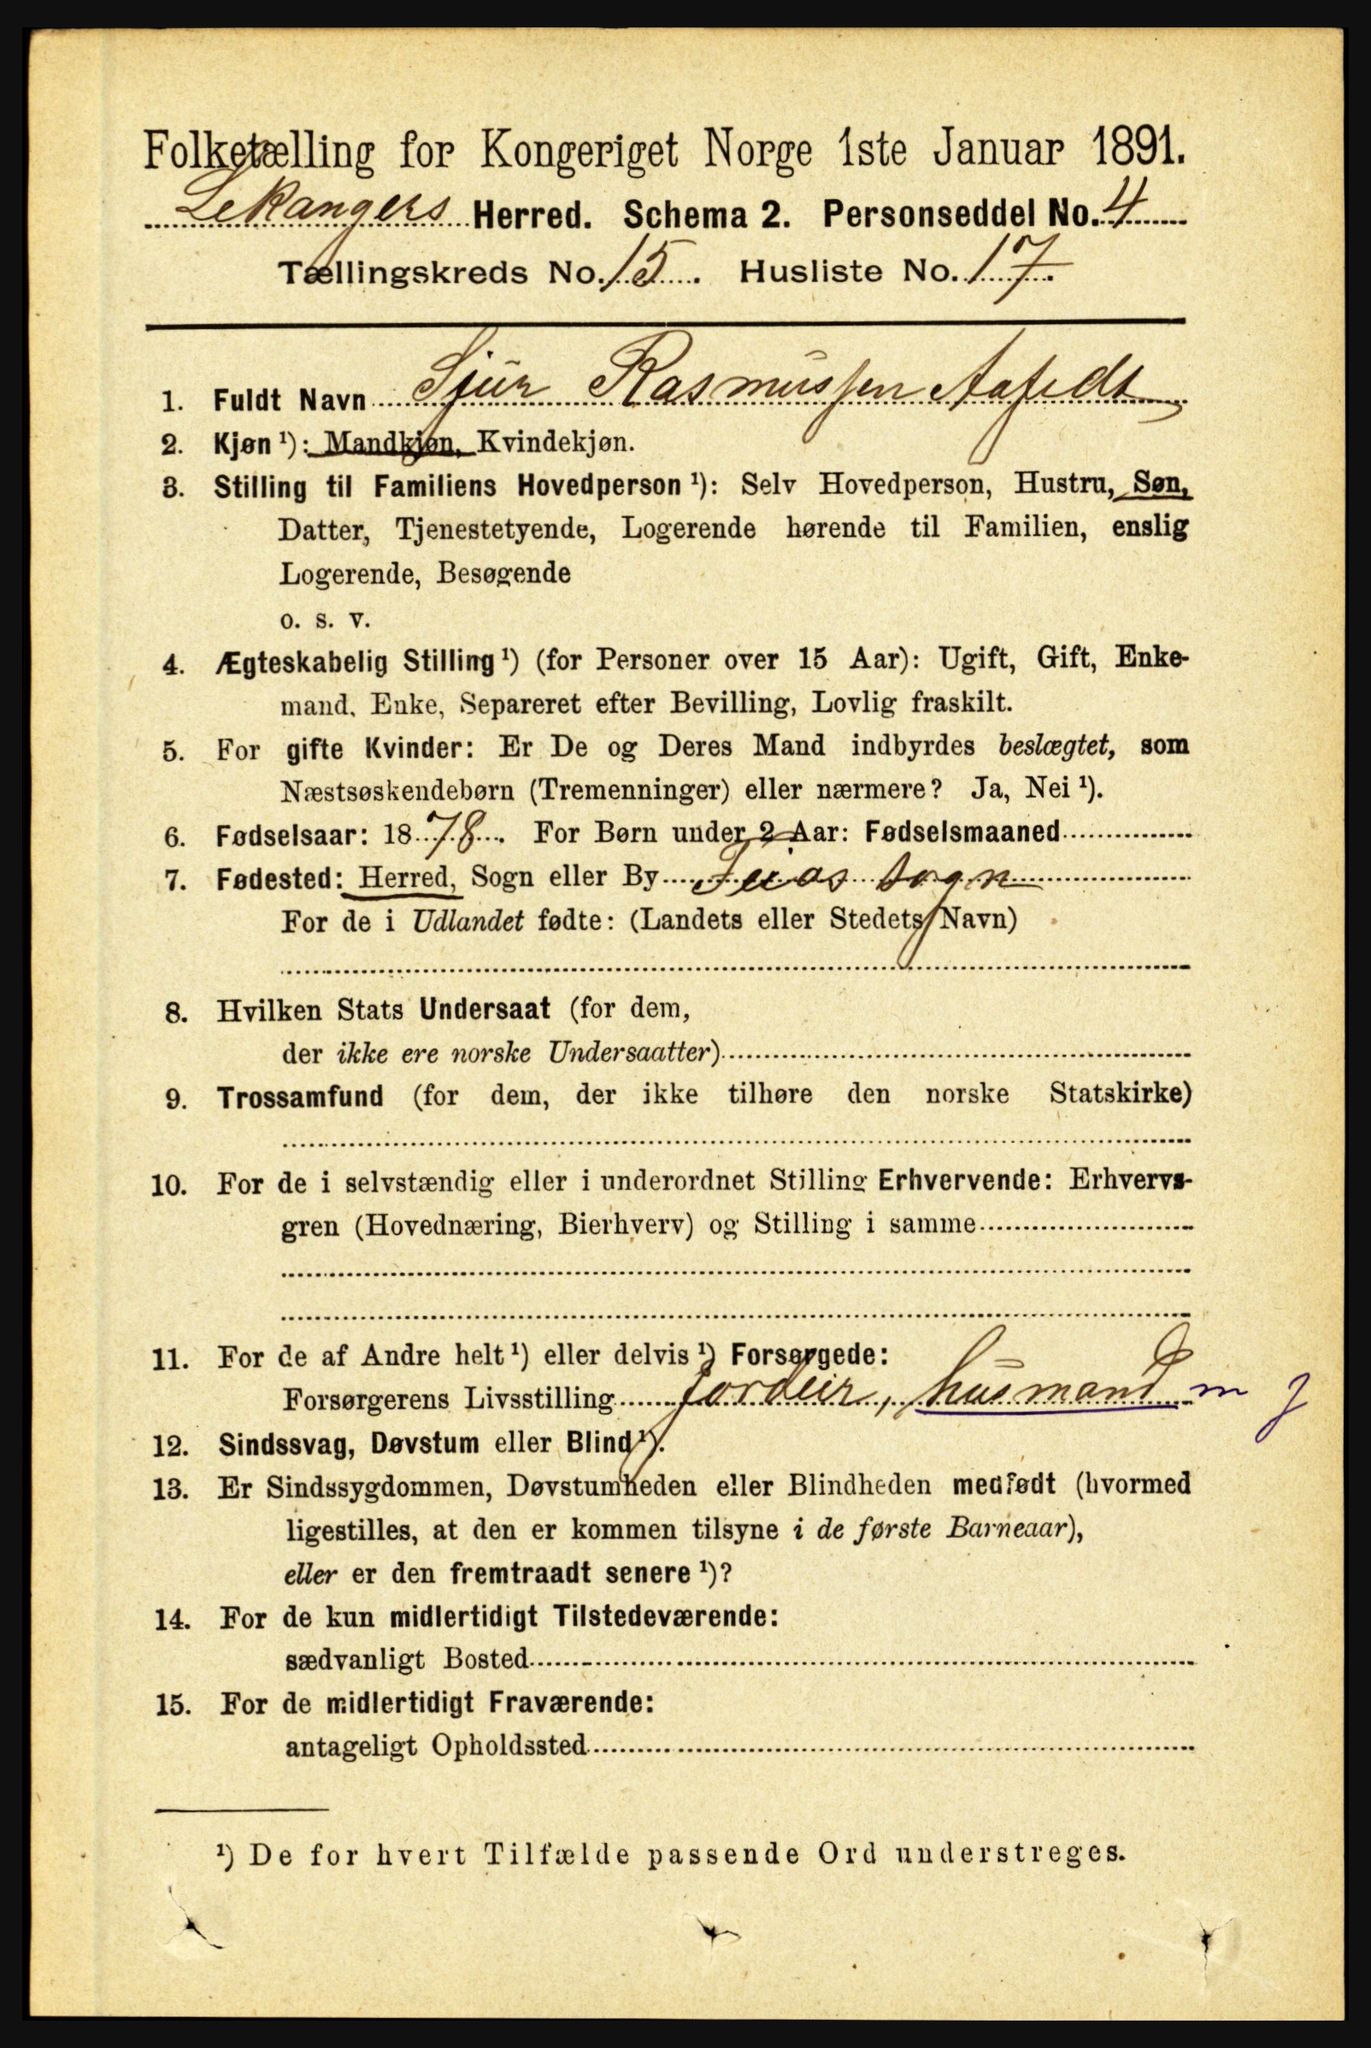 Folketælling for Kongeriget Norge 1ste Januar 1891.
Lekangers Herred. Schema 2. Personseddel No. 4
Tællingskreds No. 15. Husliste No. 17.
1. Fuldt Navn Sjur Rasmussen Aafedt
2. Kjøn ¹): Mandkjøn, Kvindekjøn.
3. Stilling til Familiens Hovedperson ¹): Selv Hovedperson, Hustru, Søn,
Datter, Tjenestetyende, Logerende hørende til Familien, enslig
Logerende, Besøgende
o. s. v.
4. Ægteskabelig Stilling ¹) (for Personer over 15 Aar): Ugift, Gift, Enke-
mand, Enke, Separeret efter Bevilling, Lovlig fraskilt.
5. For gifte Kvinder: Er De og Deres Mand indbyrdes beslægtet, som
Næstsøskendebørn (Tremenninger) eller nærmere? Ja, Nei ¹).
6. Fødselsaar: 1878. For Børn under 2 Aar: Fødselsmaaned
7. Fødested: Herred, Sogn eller By Feios sogn
For de i Udlandet fødte: (Landets eller Stedets Navn)
8. Hvilken Stats Undersaat (for dem,
der ikke ere norske Undersaatter)
9. Trossamfund (for dem, der ikke tilhøre den norske Statskirke)
10. For de i selvstændig eller i underordnet Stilling Erhvervende: Erhvervs-
gren (Hovednæring, Bierhverv) og Stilling i samme
11. For de af Andre helt ¹) eller delvis ¹) Forsørgede:
Forsørgerens Livsstilling Jordeir, husmand m j
12. Sindssvag, Døvstum eller Blind ¹).
13. Er Sindssygdommen, Døvstumheden eller Blindheden medfødt (hvormed
ligestilles, at den er kommen tilsyne i de første Barneaar),
eller er den fremtraadt senere ¹)?
14. For de kun midlertidigt Tilstedeværende:
sædvanligt Bosted
15. For de midlertidigt Fraværende:
antageligt Opholdssted
¹) De for hvert Tilfælde passende Ord understreges.